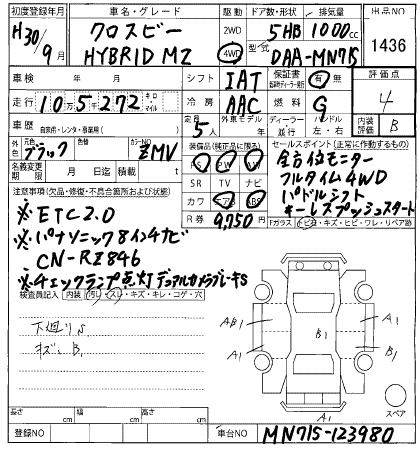 初度登録年月 車名・グレード 駆動 ドア数・形状 排気量 出品NO
H30/9月 クロスビー HYBRID MZ 2WD 4WD 5HB 1000cc 1436
型式 DAA-MN71S
車検 年 月 シフト IAT 保証書 有 無 評価点
走行 10万5272 キロ・マイル 冷房 AAC 燃料 G 4
車歴 自家用・レンタ・事業用( ) 定員 5人 外車モデル 年 ディーラー 並行 ハンドル 左・右 内装 B
外色 元色 ブラック カラーNO ZMV 装備品(純正品に限る) セールスポイント(正常に作動するもの)
名義変更期限 月 日 積載 t PS PW SR TV ナビ カワ エアB ABS
全方位モニター
フルタイム4WD
パドルシフト
キーレスプッシュスタート
注意事項(欠品・修復・不具合箇所および状態) R券 9,750
Fガラス トビ石・キズ・ヒビ・ワレ・リペア跡
※ETC2.0
※パナソニック8インチナビ
CN-RZ846
※チェックランプ点灯デュアルカメラブレーキS
検査員記入 内装 汚れ・スレ・キズ・キレ・コゲ・穴
下廻りS
キズ、B
AB1 A1 B1 A1 B1 A1
スペア
長さ cm 幅 cm 高さ cm
登録NO 車台NO MN71S-123980